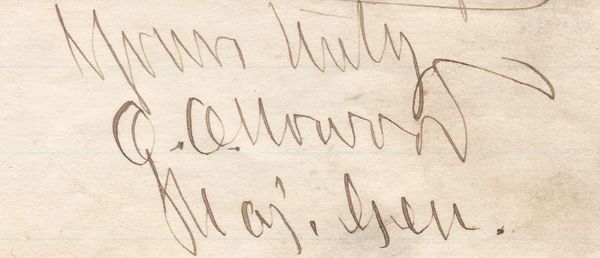 Yours truly
O. O. Howard
Maj. Gen.